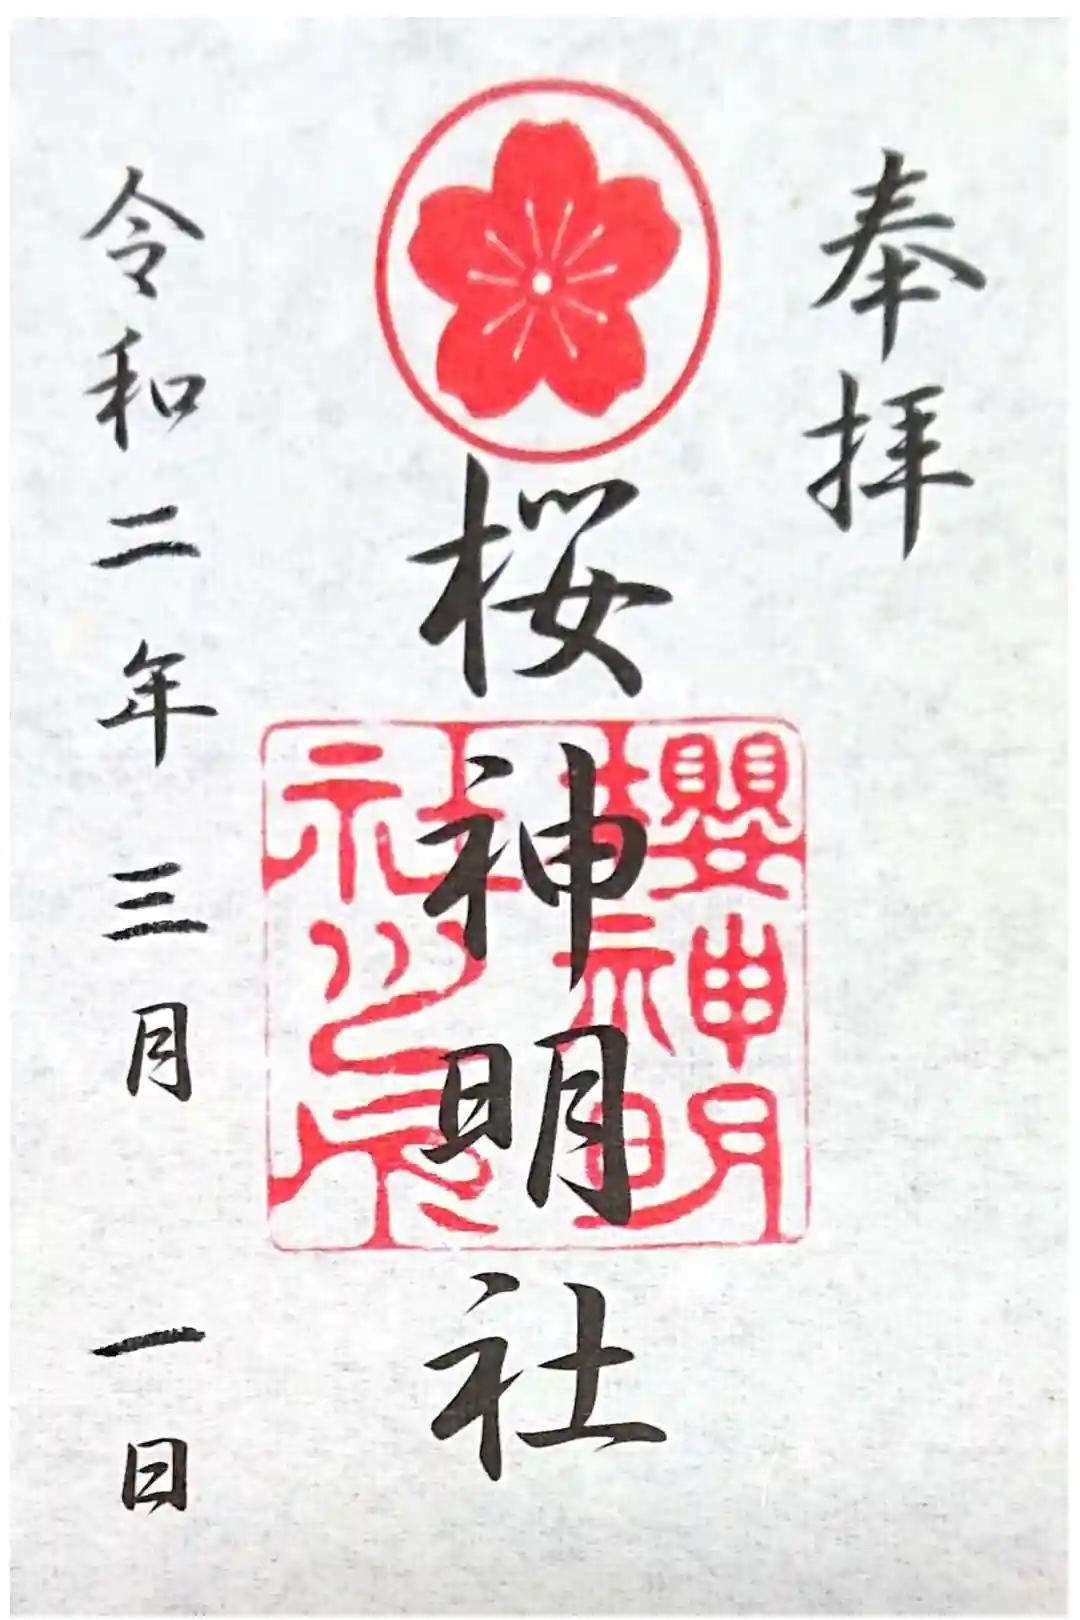 奉拝
桜神明社
櫻神明
社之印
令和二年三月一日